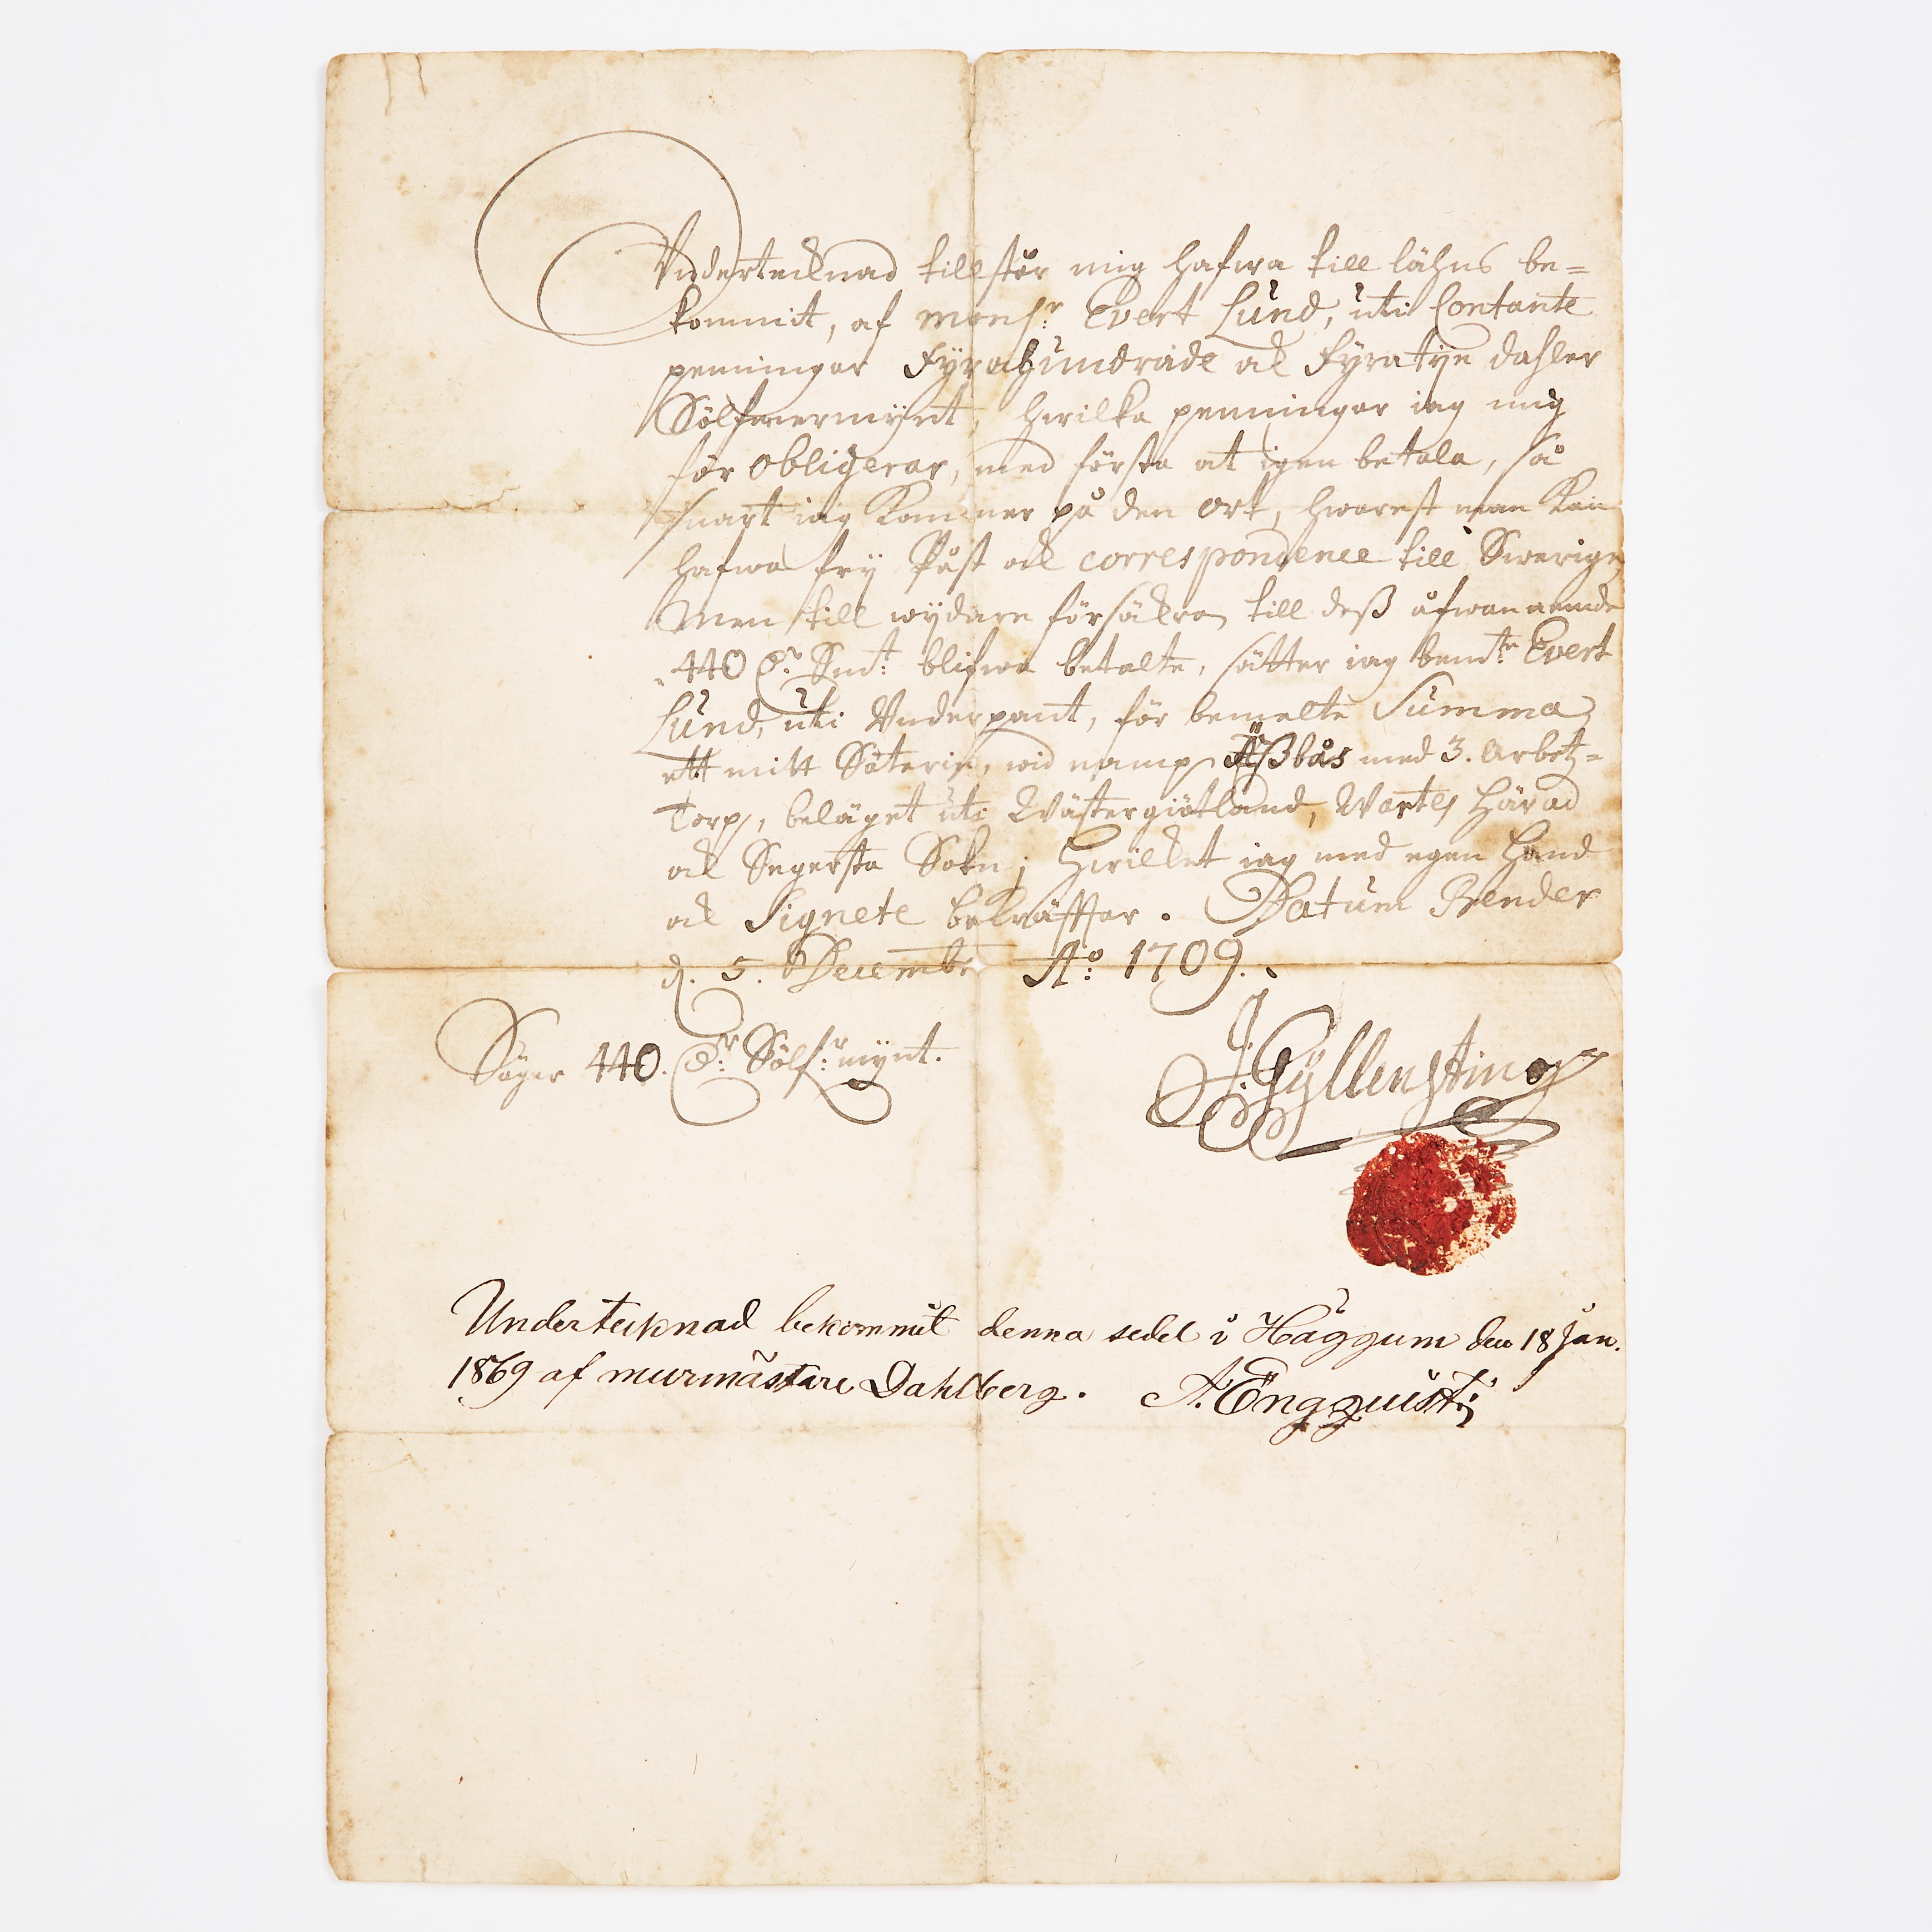 Vndertecknad tillstår mig hafwa till låhns be=
kommit, af Monsr: Evert Lund, uti Contante
penningar Fyrahundrade ock Fyratije dahler
Sölfwermÿnt, hwilka penningar iag mig
för obligerar, med första at igen betala, så
snart iag Kommer på den ort, hwarest man Kan
hafwa frij Påst ock correspondence till Swerige,
Men till wÿdare försäkran till deß åfwannemde
440 Dr: Smt: blifwa betalte, sätter iag bemte: Evert
Lund, uti Vnderpant, för bemelte Summa
ett mitt Säterie, wid namp Åßbås med 3. Arbetz=
Torp, beläget uti Wästergiötland, Wartss Härad
ock Segersta Sokn; Hwilket iag med egen Hand
ock Signete bekräfftar. Datum Bender
d. 5. Decembr Ao: 1709.
Säger 440. Dr: Sölfr: mÿnt.
J. Gÿllensting
Undertecknad bekommit denna sedel i Häggum den 18 Jan.
1869 af murmästare Dahlberg. A. Engquist